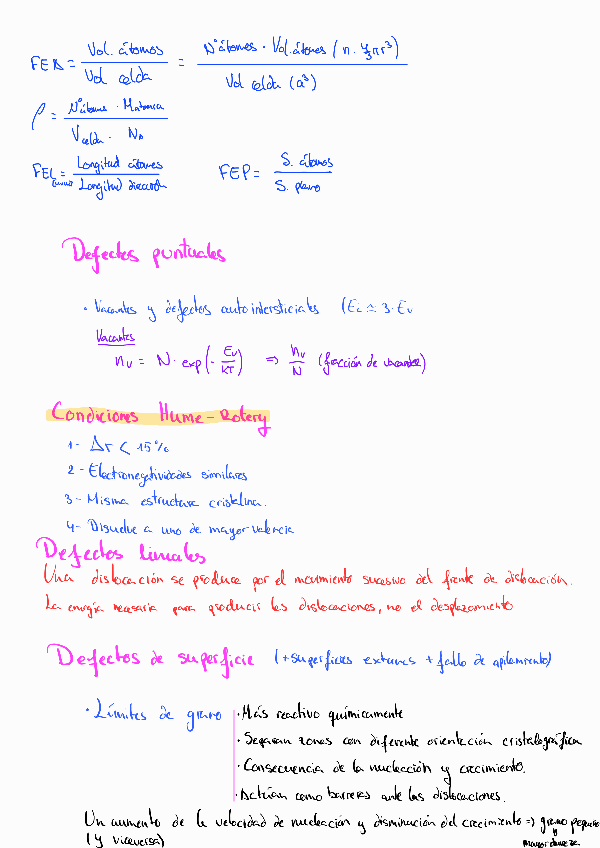 FEA = Vol. átomos / Vol celda = Nºátomos · Vol. átomos (n · 4/3 π r³) / Vol celda (a³)
ρ = Nºátomos · Matómica / Vcelda · NA
FEL (lineal) = Longitud átomos / Longitud dirección FEP = S. átomos / S. plano
Defectos puntuales
· Vacantes y defectos autointersticiales (Ei ≃ 3·Ev
Vacantes
nv = N · exp(- Ev/KT) ⇒ nv/N (fracción de vacantes)
Condiciones Hume-Rotery
1- Δr < 15%
2- Electronegatividades similares
3- Misma estructura cristalina.
4- Disuelve a uno de mayor valencia
Defectos lineales
Una dislocación se produce por el movimiento sucesivo del frente de dislocación.
La energía necesaria para producir las dislocaciones, no el desplazamiento
Defectos de superficie (+superficies externas + fallo de apilamiento)
· Límites de grano · Más reactivo químicamente
· Separan zonas con diferente orientación cristalográfica
· Consecuencia de la nucleación y crecimiento.
· Actúan como barreras ante las dislocaciones.
Un aumento de la velocidad de nucleación y disminución del crecimiento ⇒ grano pequeño
(y viceversa) y
mayor dureza